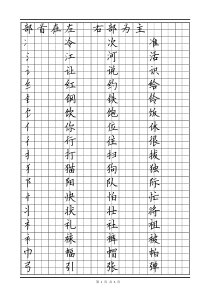 部首在左 右部为主
冫 冷 次 准
氵 江 河 活
讠 让 说 识
纟 红 约 给
钅 钢 铁 铃
饣 饮 饱 饭
亻 你 位 休
彳 行 往 很
扌 打 扫 拔
犭 猫 狗 独
阝 阳 队 际
忄 快 怕 忙
丬 状 壮 将
礻 礼 社 祖
衤 裤 被
巾 幅 帽 帕
弓 引 张 弹